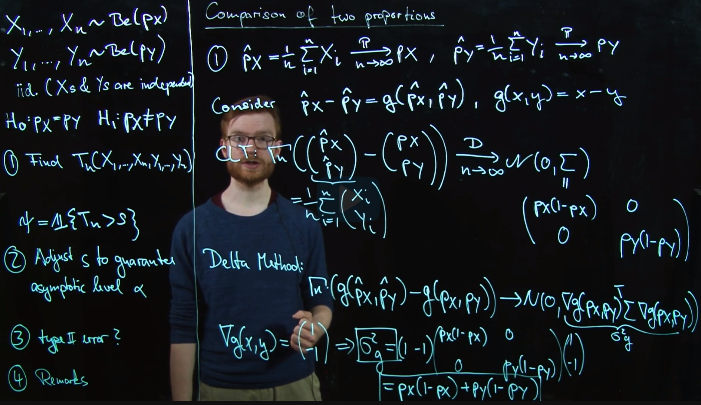 X₁,..., Xₙ ~ Be(pX)
Y₁,..., Yₙ ~ Be(pY)
iid. (Xs & Ys are independent)
H₀: pX = pY H₁: pX ≠ pY
① Find Tₙ(X₁,...,Xₙ,Y₁,...,Yₙ)
ψ = 𝟙{Tₙ > s}
② Adjust s to guarantee
asymptotic level α
③ type II error?
④ Remarks
Comparison of two proportions
① p̂X = 1/n Σᵢ₌₁ⁿ Xᵢ →ᴾ n→∞ pX , p̂Y = 1/n Σᵢ₌₁ⁿ Yᵢ →ᴾ n→∞ pY
Consider p̂X - p̂Y = g(p̂X, p̂Y) , g(x,y) = x - y
CLT: √n ((p̂X p̂Y) - (pX pY)) →ᴰ n→∞ N(0, Σ)
= 1/n Σᵢ₌₁ⁿ (Xᵢ Yᵢ)
=
(pX(1-pX) 0
0 pY(1-pY))
Delta Method:
√n (g(p̂X, p̂Y) - g(pX, pY)) → N(0, ∇g(pX,pY)ᵀ Σ ∇g(pX,pY))
σ²g
∇g(x,y) = (1 -1) ⇒ σ²g = (1 -1) (pX(1-pX) 0 0 pY(1-pY)) (1 -1)
= pX(1-pX) + pY(1-pY)